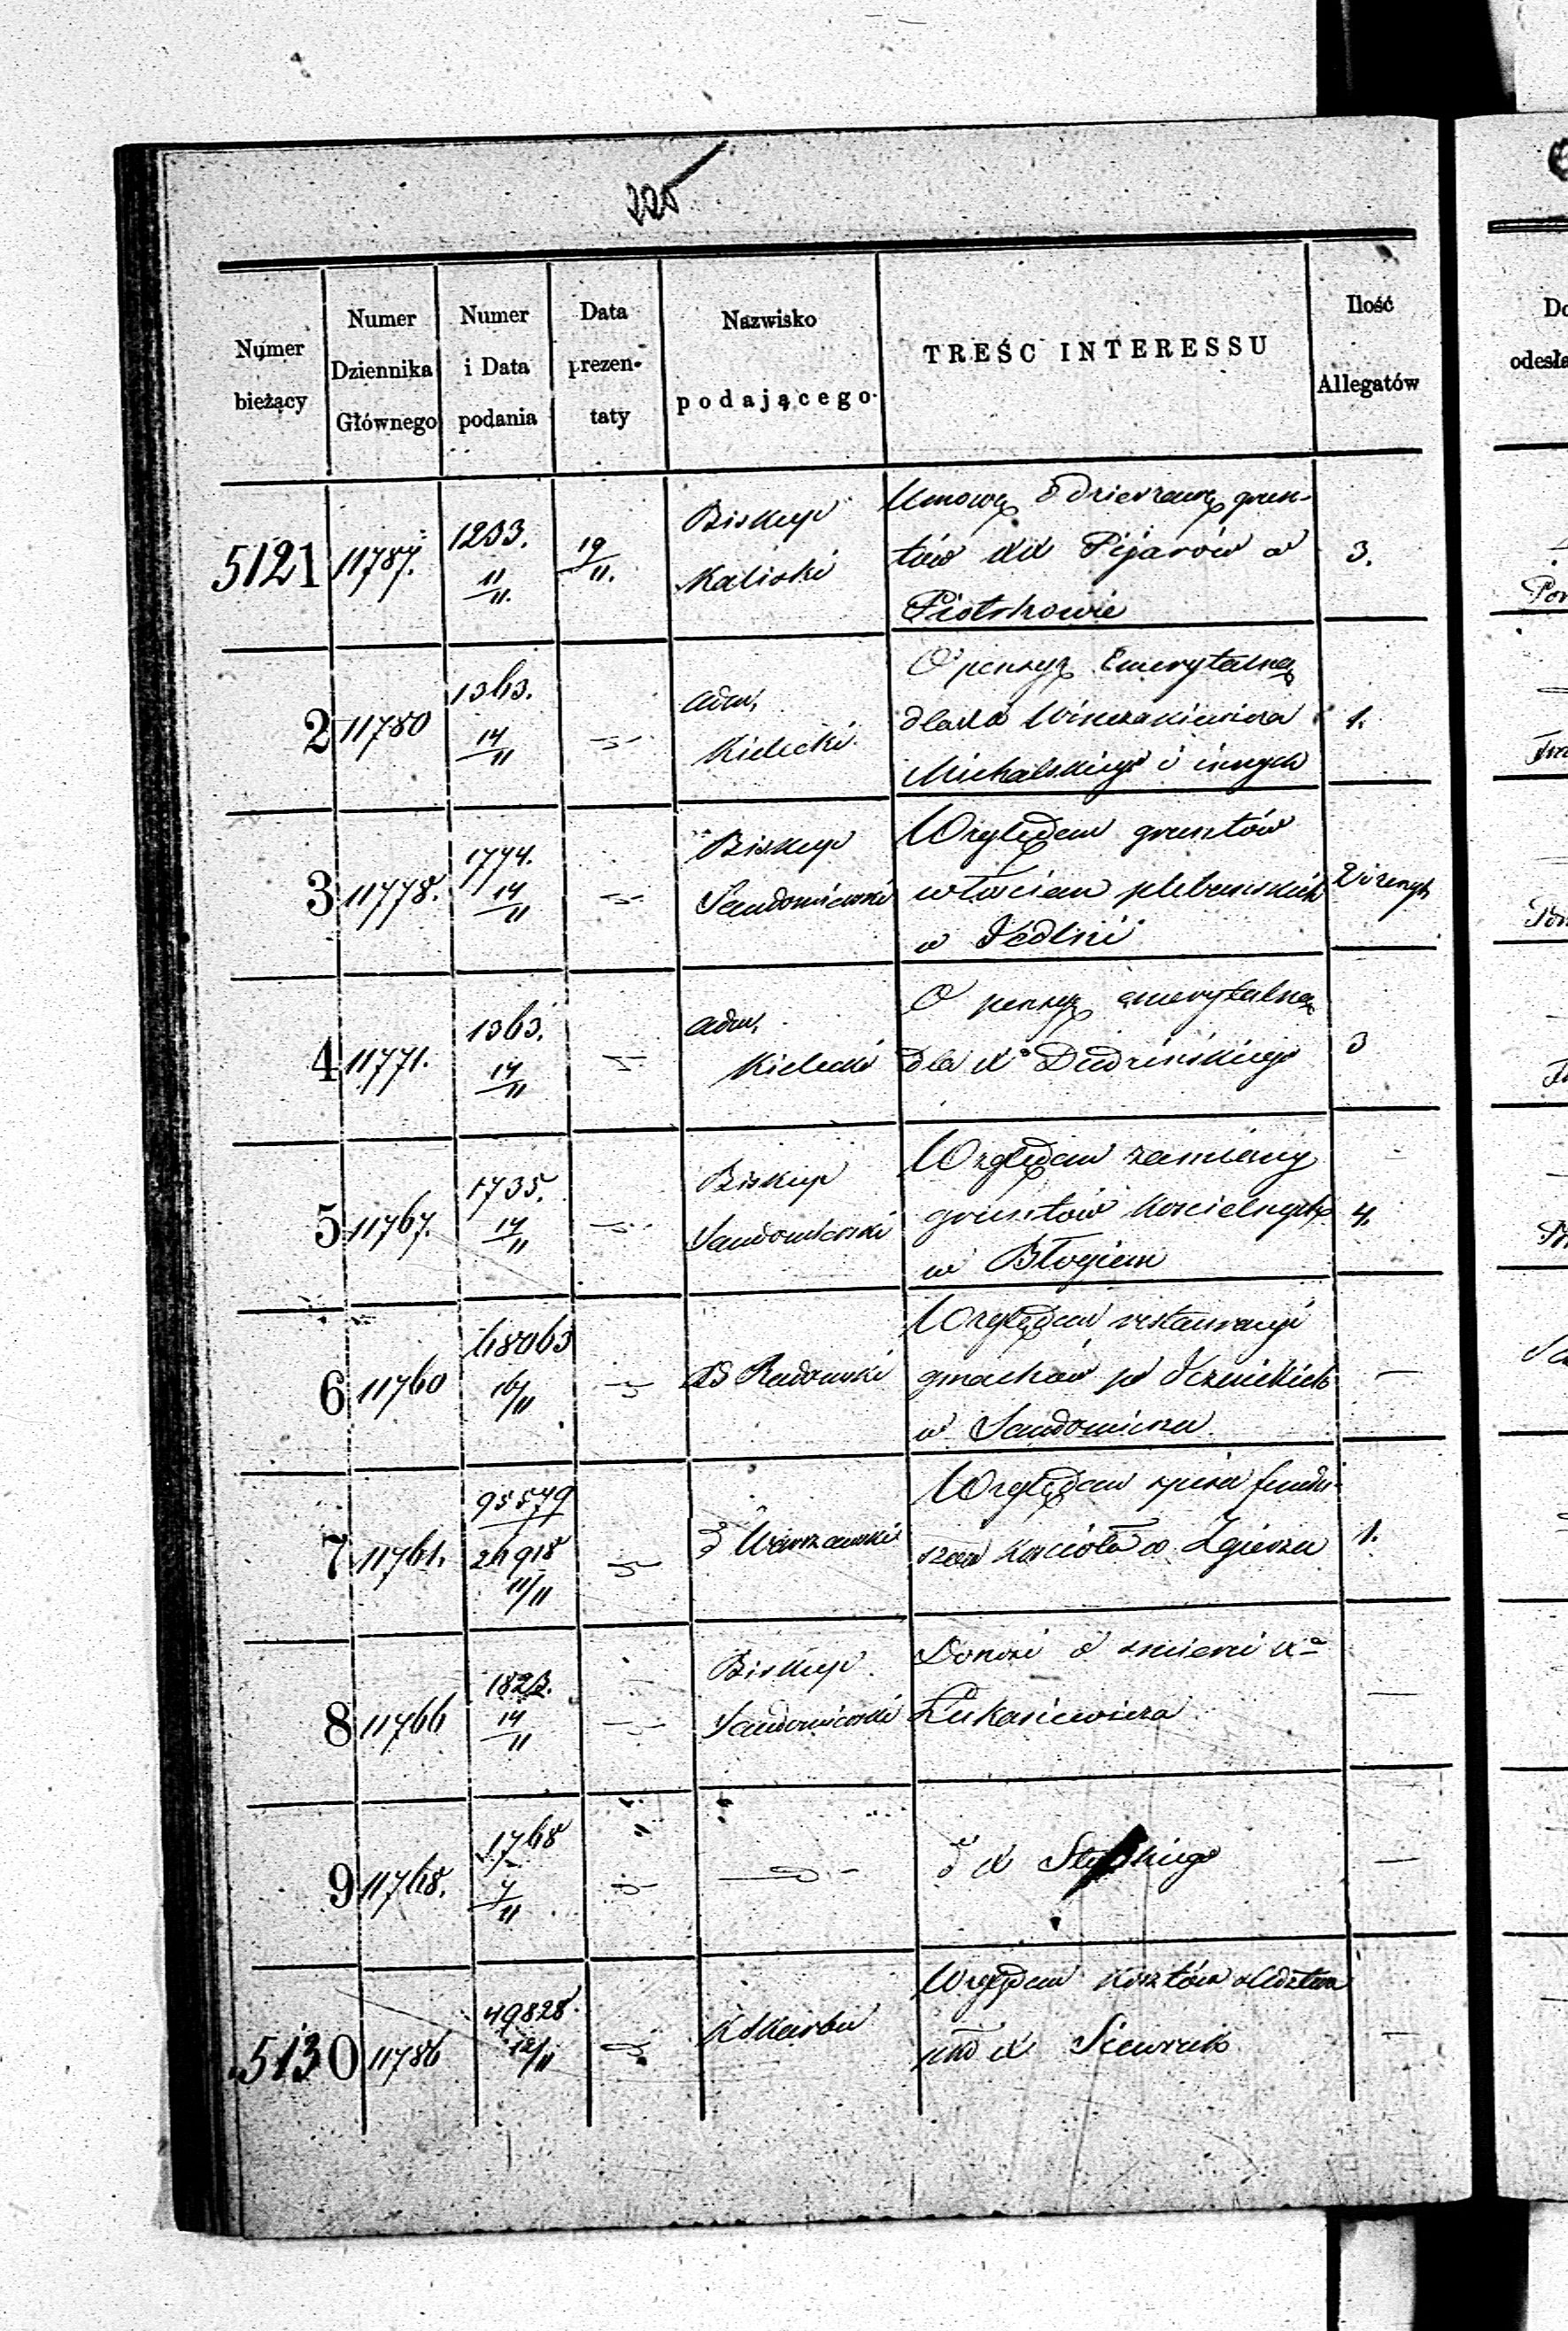 225
Numer bieżący
Numer Dziennika Głównego
Numer i Data podania
Data prezen- taty
Nazwisko podającego
TREŚĆ INTERESSU
Ilość Allegatów
5121 11787. 1233. 11/11. 19/11. Biskup Kaliski
Umowę o dzierżawę grun-
tów XX Pijarów w 3.
Piotrkowie
2 11780 1363. 14/11 Adm. Kielecki
O pensyę Emerytalną
dla Xa Winczakiewicza 1.
Michalskiego i innych
3 11778. 1774. 14/11 Biskup Sandomierski
Względem gruntów
włościan plebańskich
w Jedlni
4 11771. 1363. 14/11 Adm. Kielecki
O pensyę emerytalną
dla Xa Dudzińskiego 3
5 11767. 1735. 14/11 Biskup Sandomierski
Względem zamiany
gruntów Kościelnych 4.
w Błogiem
6 11760 68063 16/11 Radomski
Względem restauracyi
gmachów po
w Sandomierzu
7 11761. 95579 26918 11/11 d Warszawski
Względem spisu fundu-
szów Kościoła w Zgierzu 1.
8 11766 1823. 14/11 Biskup Sandomierski
Donosi o śmierci Xa
Łukasiewicza
9 11768. 1768 7/11
d X
5130 11786 49828. 12/11 K Skarbu
Względem Kosztów śledztwa
nad X
Do
odesła